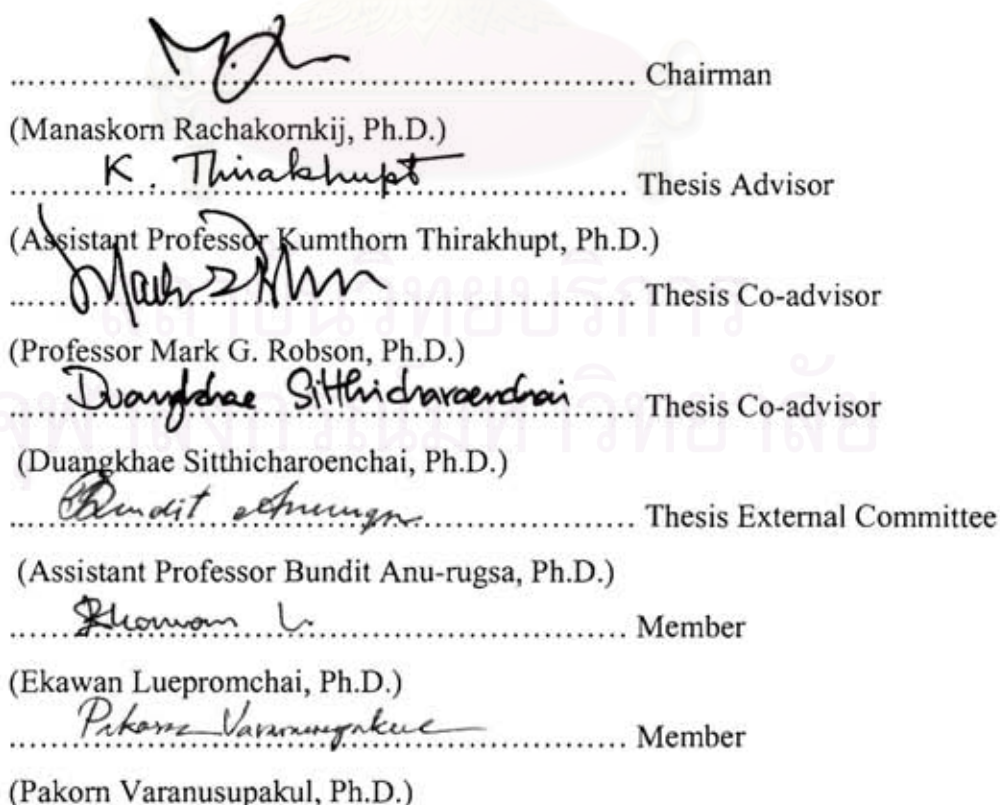 ........................................................................ Chairman
(Manaskorn Rachakornkij, Ph.D.)
K. Thirakhupt
........................................................................ Thesis Advisor
(Assistant Professor Kumthorn Thirakhupt, Ph.D.)
........................................................................ Thesis Co-advisor
(Professor Mark G. Robson, Ph.D.)
Duangkhae Sitthicharoenchai
........................................................................ Thesis Co-advisor
(Duangkhae Sitthicharoenchai, Ph.D.)
Bundit
........................................................................ Thesis External Committee
(Assistant Professor Bundit Anu-rugsa, Ph.D.)
Ekawan L.
........................................................................ Member
(Ekawan Luepromchai, Ph.D.)
Pakorn Varanusupakul
........................................................................ Member
(Pakorn Varanusupakul, Ph.D.)
สถาบันวิทยบริการ
จุฬาลงกรณ์มหาวิทยาลัย